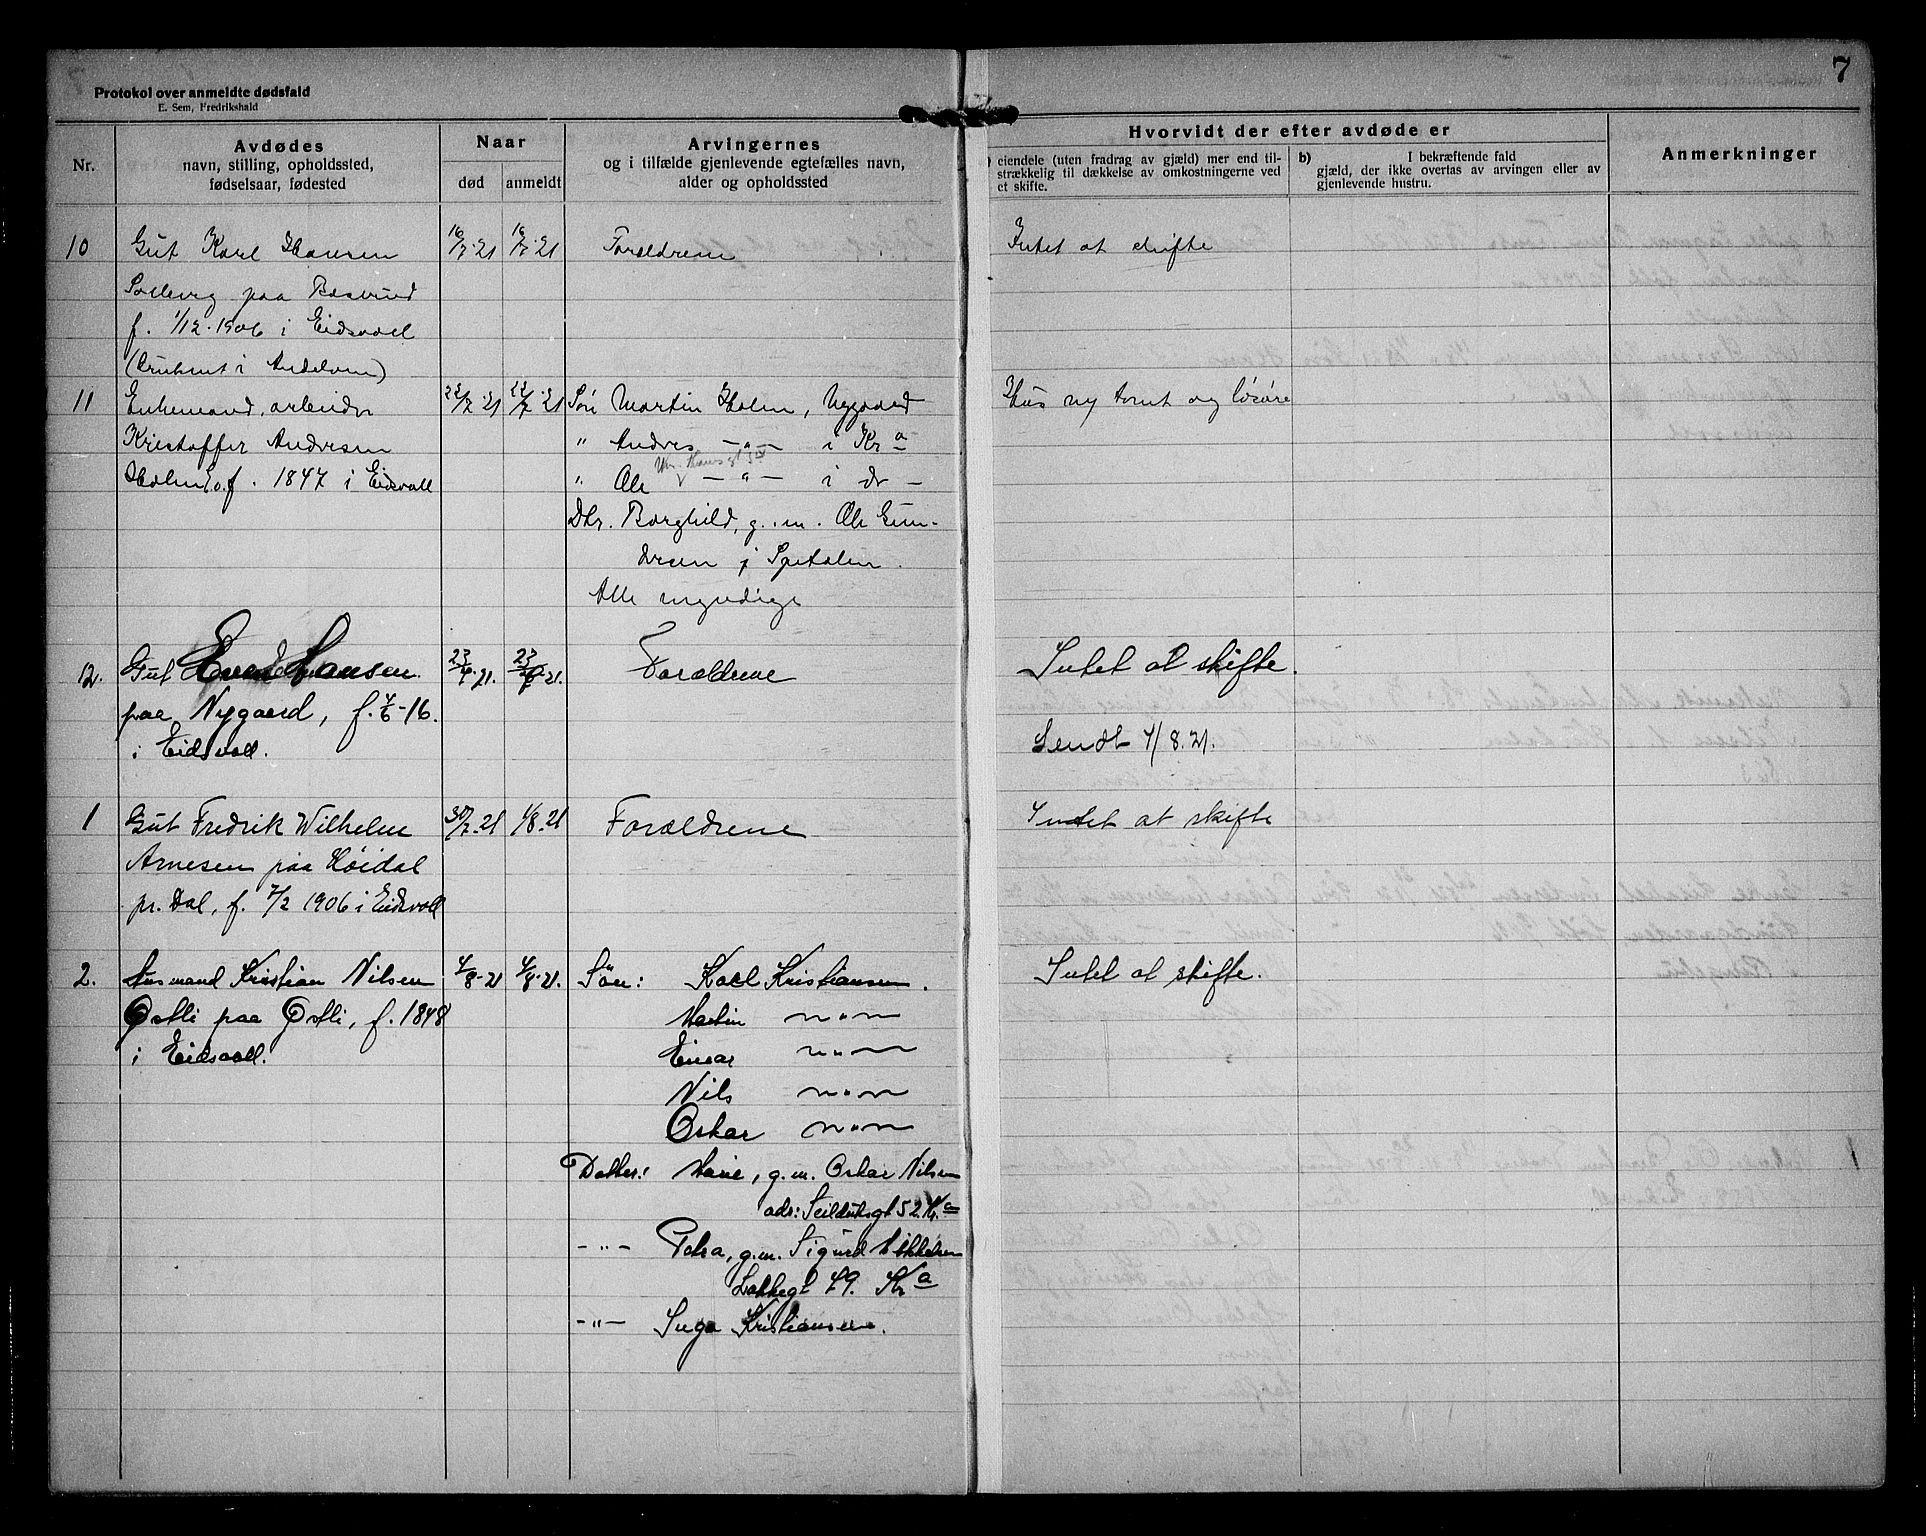 7
Protokol over anmeldte dødsfald
E. Sem, Fredrikshald
Nr.
Avdødes
navn, stilling, opholdssted,
fødselsaar, fødested
Naar
død
anmeldt
Arvingernes
og i tilfælde gjenlevende egtefælles navn,
alder og opholdssted
Hvorvidt der efter avdøde er
eiendele (uten fradrag av gjæld) mer end til-
strækkelig til dækkelse av omkostningerne ved
et skifte.
b) I bekræftende fald
gjæld, der ikke overtas av arvingen eller av
gjenlevende hustru.
Anmerkninger
10 Gut Karl Hansen 16/7.21 16/7.21 Forældrene Intet at skifte
paa
f. 1/12.1906 i Eidsvoll
i Andelven)
11 Enkemand, arbeider 22/7.21 22/7.21 Søn Martin Holm, Nygaard Hus og løsøre
Kristoffer Andresen " Andres — " — i Kr a
Holm f. 1847 i Eidsvoll " Ole — " — i do —
Dtr. Borghild, g. m. Ole Gun-
dersen i
Alle myndige
12. Gut Hansen 23/7.21. 23/7.21. Forældrene Intet at skifte.
paa Nygaard, f. /6-16. Sendt 1/8.21.
i Eidsvoll.
1 Gut Fredrik Wilhelm 30/7.21 1/8.21 Forældrene Intet at skifte
Arnesen paa Høidal
pr. Dal, f. 7/2 1906 i Eidsvoll
2. Husmand Kristian Nilsen 4/8-21 4/8-21. Søn: Karl Kristiansen. Intet at skifte.
Østli paa Østli, f. 1848 Martin — " —
i Eidsvoll. Einar — " —
Nils — " —
Oskar — " —
Datter: Marie, g. m. Oskar Nilsen
adr: Seilduksgt 52 Kr. a
— " — Petra, g. m. Sigurd Mikkelsen
Lakkegt 49. Kr a
— " — Inga Kristiansen.